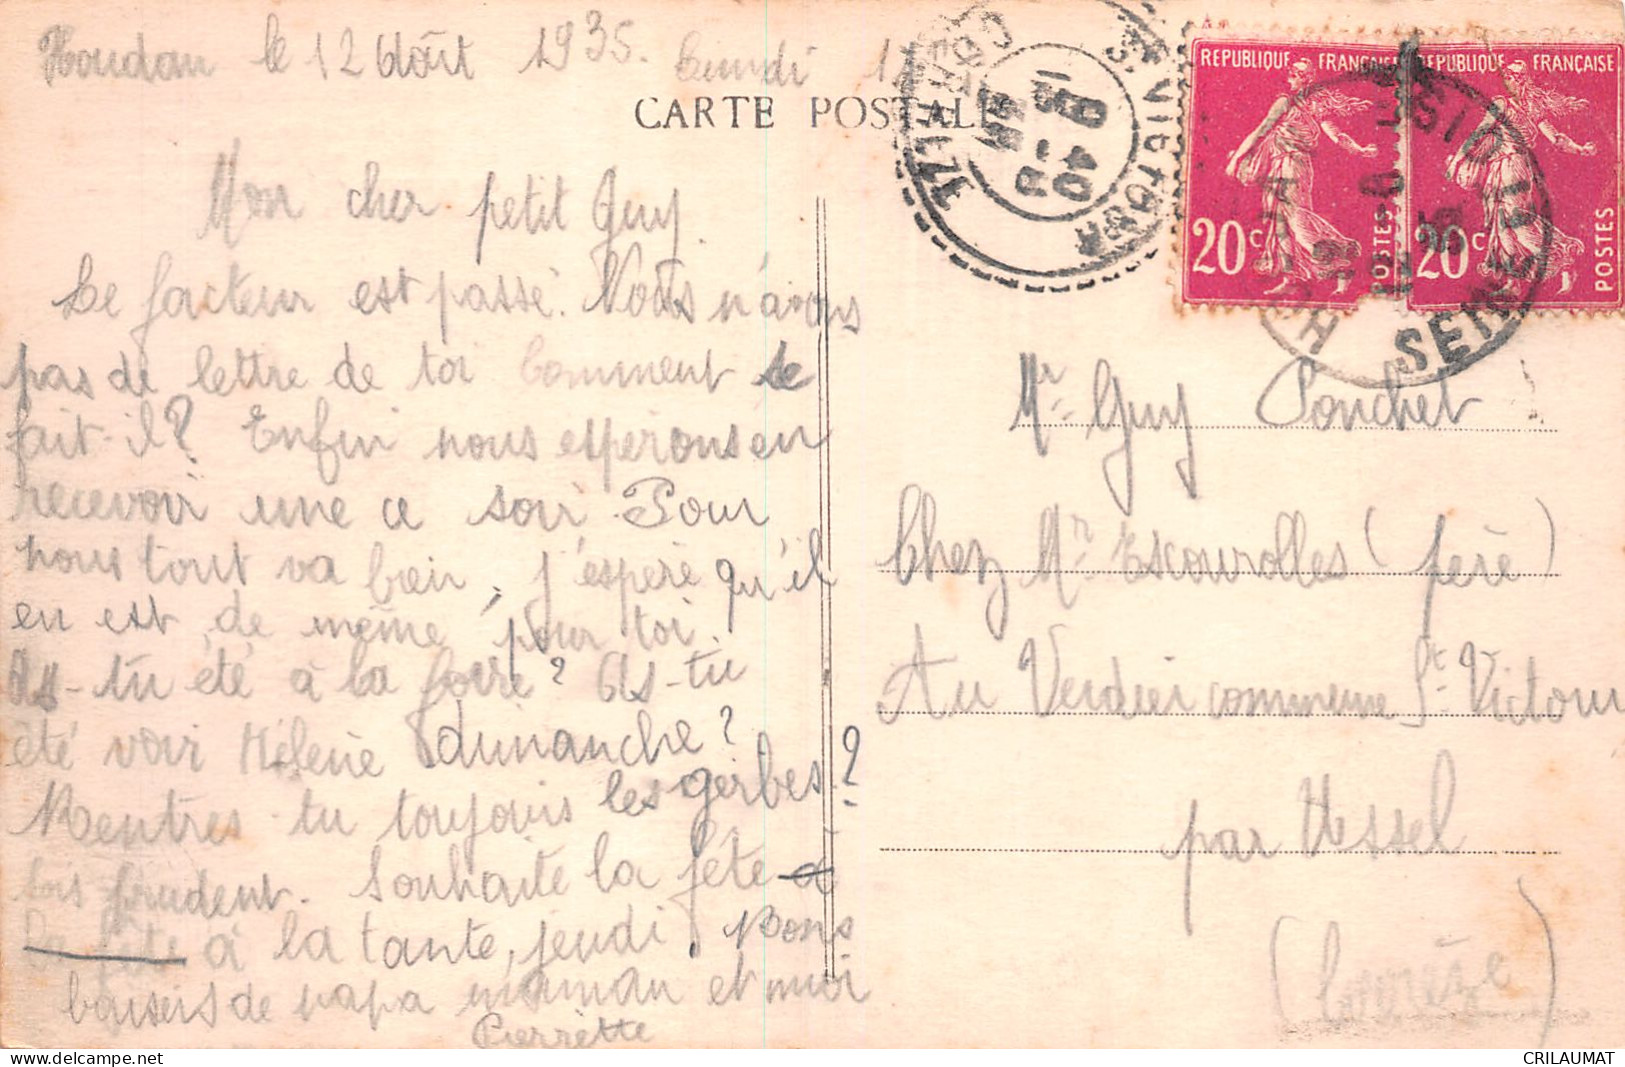 Houdan le 12 Août 1935. Lundi
CARTE POSTALE
Mon cher petit Guy.
Le facteur est passé. Nous n'avons
pas de lettre de toi Comment se
fait-il? Enfin nous espérons en
recevoir une ce soir. Pour
nous tout va bien, j'espère qu'il
en est de même pour toi.
As-tu été à la foire? As-tu
été voir Hélène dimanche?
Rentres-tu toujours les gerbes?
Sois prudent. Souhaite la fête à
la fête à la tante, jeudi. Bons
baisers de papa maman et moi
Pierrette
REPUBLIQUE FRANÇAISE
20c
POSTES
REPUBLIQUE FRANÇAISE
20c
POSTES
ST VICTOUR
CORREZE
13 -8
35
HOUDAN
SEINE
Mr Guy Ponchet
Chez Mr Escourolles (père)
Au Verdier commune St Victour
par Ussel
(Corrèze)
CRILAUMAT